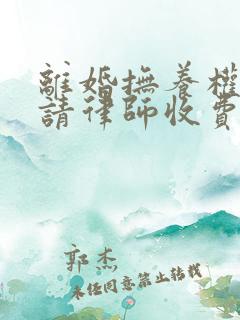 離婚撫養權
請律師收費
郭杰
未經同意禁止轉載